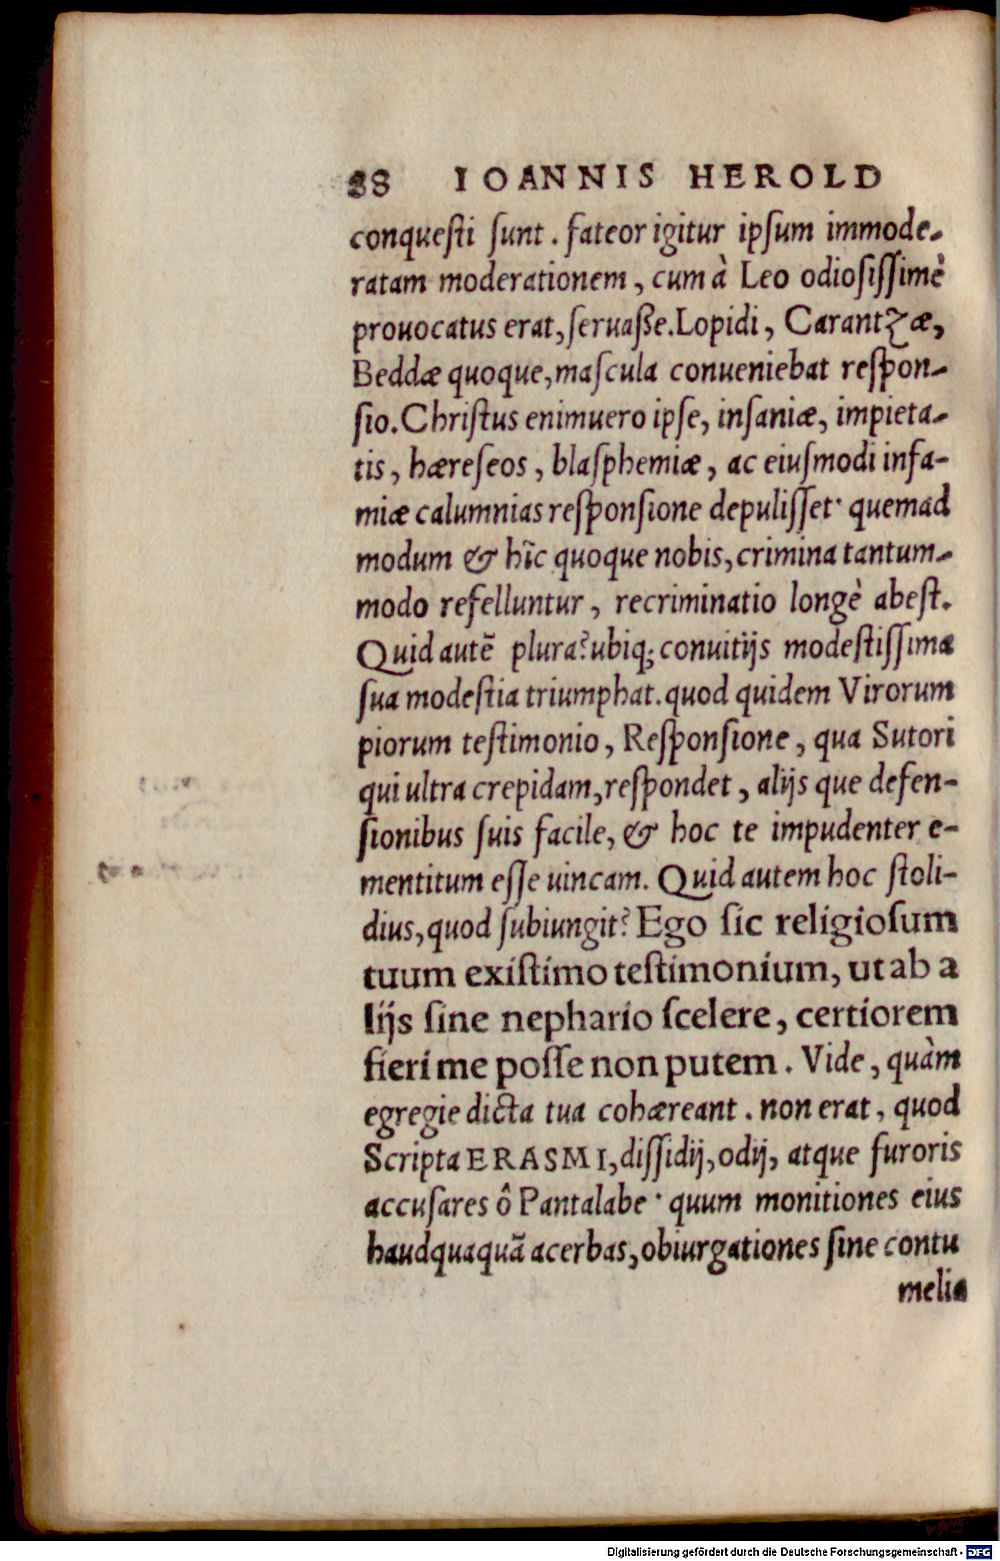 88 IOANNIS HEROLD
conqueſti ſunt. fateor igitur ipſum immode-
ratam moderationem, cum à Leo odioſiſſimè
prouocatus erat, ſeruaſſe. Lopidi, Carantzæ,
Beddæ quoque, maſcula conueniebat reſpon-
ſio. Chriſtus enimuero ipſe, inſaniæ, impieta-
tis, hæreſeos, blaſphemiæ, ac eiuſmodi infa-
miæ calumnias reſponſione depuliſſet· quemad
modum & hîc quoque nobis, crimina tantum-
modo refelluntur, recriminatio longè abeſt.
Quid autẽ plura? ubiq; conuitijs modeſtiſſima
ſua modeſtia triumphat. quod quidem Virorum
piorum teſtimonio, Reſponſione, qua Sutori
qui ultra crepidam, reſpondet, alijs que defen-
ſionibus ſuis facile, & hoc te impudenter e-
mentitum eſſe uincam. Quid autem hoc ſtoli-
dius, quod ſubiungit? Ego ſic religioſum
tuum exiſtimo teſtimonium, ut ab a
lijs ſine nephario ſcelere, certiorem
fieri me poſſe non putem. Vide, quàm
egregie dicta tua cohæreant. non erat, quod
Scripta ERASMI, diſſidij, odij, atque furoris
accuſares ô Pantalabe· quum monitiones eius
haudquaquã acerbas, obiurgationes ſine contu
melia
Digitalisierung gefördert durch die Deutsche Forschungsgemeinschaft - DFG